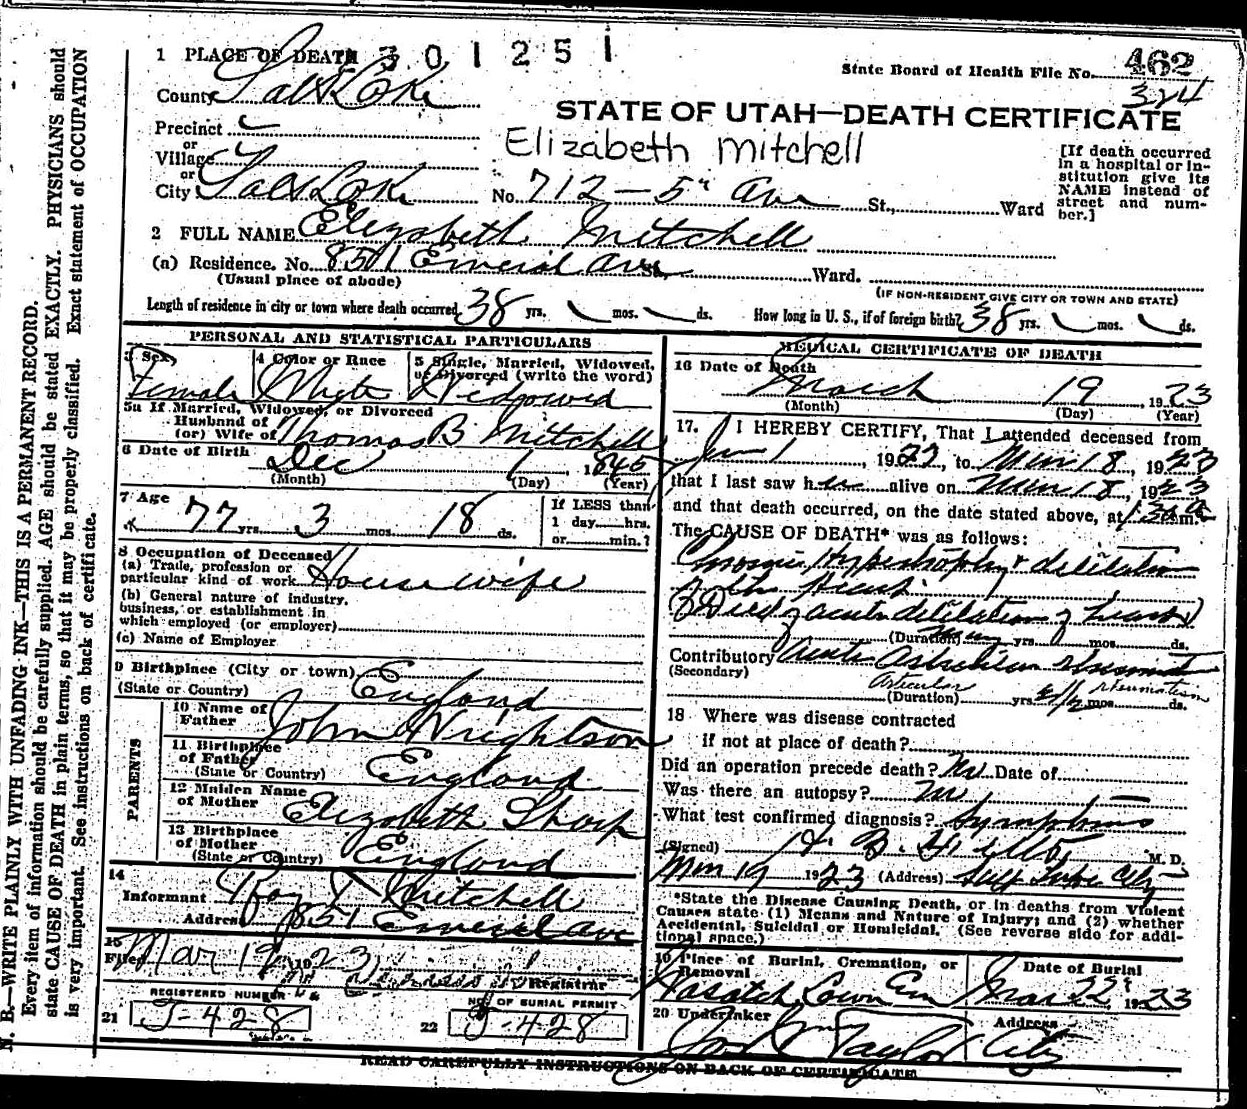 1 PLACE OF DEATH 301251
State Board of Health File No. 462
324
County Salt Lake
STATE OF UTAH—DEATH CERTIFICATE
Precinct
or
Village
or
City Salt Lake
Elizabeth Mitchell
No. 712 - 5" Ave St., Ward
[If death occurred
in a hospital or in-
stitution give its
NAME instead of
street and num-
ber.]
2 FULL NAME Elizabeth Mitchell
(a) Residence. No. 851 Emeral Ave St., Ward.
(Usual place of abode)
(IF NON-RESIDENT GIVE CITY OR TOWN AND STATE)
Length of residence in city or town where death occurred 38 yrs. mos. ds. How long in U. S., if of foreign birth? 38 yrs. mos. ds.
PERSONAL AND STATISTICAL PARTICULARS
3 Sex
Female
4 Color or Race
White
5 Single, Married, Widowed,
or Divorced (write the word)
Widowed
5a If Married, Widowed, or Divorced
Husband of
(or) Wife of Thomas B Mitchell
6 Date of Birth Dec 1, 1845
(Month) (Day) (Year)
7 Age
77 yrs. 3 mos. 18 ds.
If LESS than
1 day hrs.
or min.?
8 Occupation of Deceased
(a) Trade, profession or
particular kind of work Housewife
(b) General nature of industry,
business, or establishment in
which employed (or employer)
(c) Name of Employer
9 Birthplace (City or town)
(State or Country) England
PARENTS
10 Name of
Father John Wrightson
11 Birthplace
of Father
(State or Country) England
12 Maiden Name
of Mother Elizabeth Sharp
13 Birthplace
of Mother
(State or Country) England
14
Informant Roy Mitchell
Address 851 Emeral Ave
15
Filed Mar 19 1923
Registrar
REGISTERED NUMBER
21 J-428
NO. OF BURIAL PERMIT
22 J-428
MEDICAL CERTIFICATE OF DEATH
16 Date of Death
March 19 1923
(Month) (Day) (Year)
17. I HEREBY CERTIFY, That I attended deceased from
Jan 1, 1923, to Mar 18, 1923
that I last saw her alive on Mar 18, 1923
and that death occurred, on the date stated above, at m.
The CAUSE OF DEATH* was as follows:
Chronic Hypertrophy & dilitation
of the Heart
(Died of acute dilitation of heart)
(Duration) Many yrs. mos. ds.
Contributory Acute
(Secondary)
Articular rheumatism
(Duration) yrs. 2 1/2 mos. ds.
18 Where was disease contracted
if not at place of death?
Did an operation precede death? No Date of
Was there an autopsy? No
What test confirmed diagnosis? Symptoms
(Signed) H. B. M. D.
Mar 19 1923 (Address) Salt Lake City
*State the Disease Causing Death, or in deaths from Violent
Causes state (1) Means and Nature of Injury; and (2) whether
Accidental, Suicidal or Homicidal. (See reverse side for addi-
tional space.)
19 Place of Burial, Cremation, or
Removal
Wasatch Lawn Cem
Date of Burial
Mar 22" 1923
20 Undertaker
Jos Wm Taylor
Address
City
READ CAREFULLY INSTRUCTIONS ON BACK OF CERTIFICATE
N. B.—WRITE PLAINLY WITH UNFADING INK—THIS IS A PERMANENT RECORD.
Every item of information should be carefully supplied. AGE should be stated EXACTLY. PHYSICIANS should
state CAUSE OF DEATH in plain terms, so that it may be properly classified. Exact statement of OCCUPATION
is very important. See instructions on back of certificate.